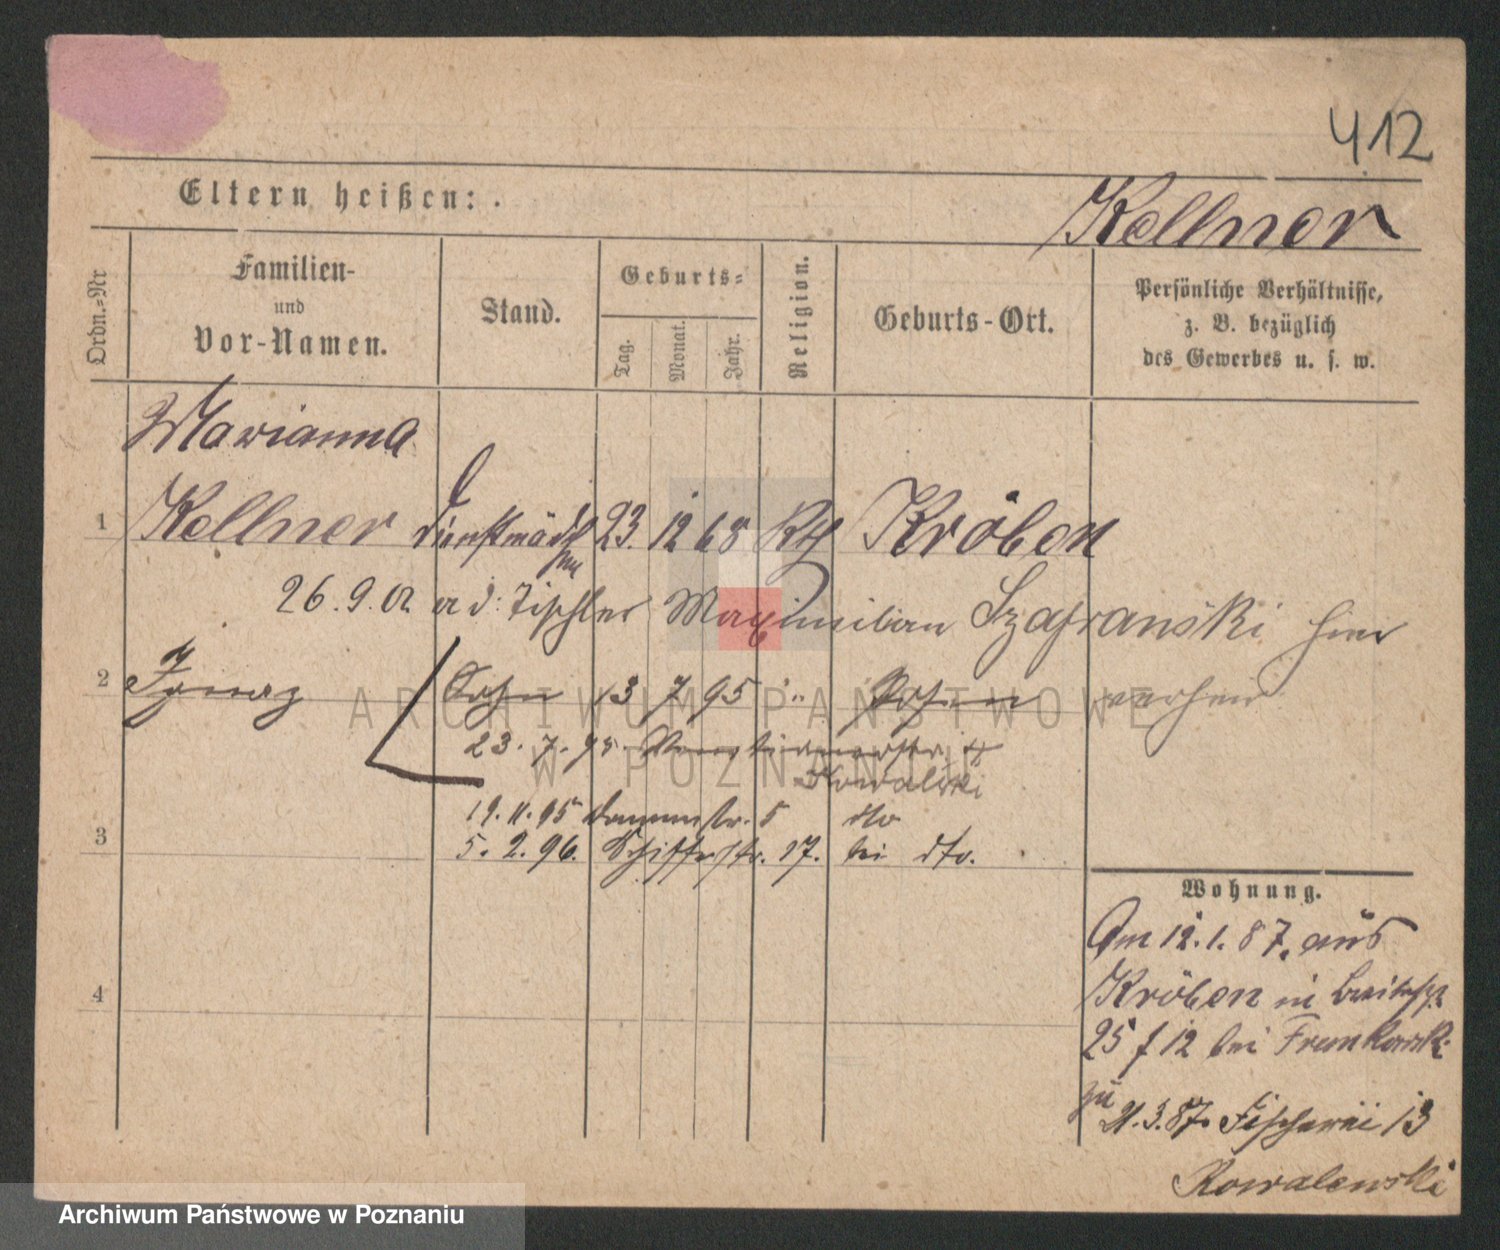 412
Eltern heißen:
Kellner
Ordn.-Nr
Familien-
und
Vor-Namen.
Stand.
Geburts-
Tag.
Monat.
Jahr.
Religion.
Geburts-Ort.
Persönliche Verhältnisse,
z. B. bezüglich
des Gewerbes u. s. w.
Marianna
1 Kellner Dienstmädchen 23. 12 68 Kth Kröben
26. 9. 02 a d: Tischler Maximilian Szafranski hier
2 Ignaz Sohn 13 7 95 " Posen
23. 7. 95.
Kowalski
19. 11. 95 Dammstr. 5 dto
3 5. 2. 96. Schifferstr. 17. bei dto.
4
Wohnung.
Am 12. 1. 87. aus
Kröben in Breitestr
25 f 12 bei Frankowski
zu
21. 3. 87. Fischerei 13
Kowalewski
ARCHIWUM PAŃSTWOWE
W POZNANIU
Archiwum Państwowe w Poznaniu